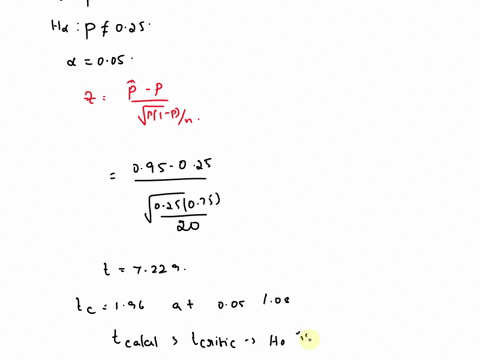 Hα : p ≠ 0.25.
α = 0.05.
z = p̂ - p / √p(1-p)/n.
= 0.95 - 0.25 / √0.25(0.75)/20
t = 7.229.
tc = 1.96 at 0.05 1.0s
t calcal > t critic → Ho